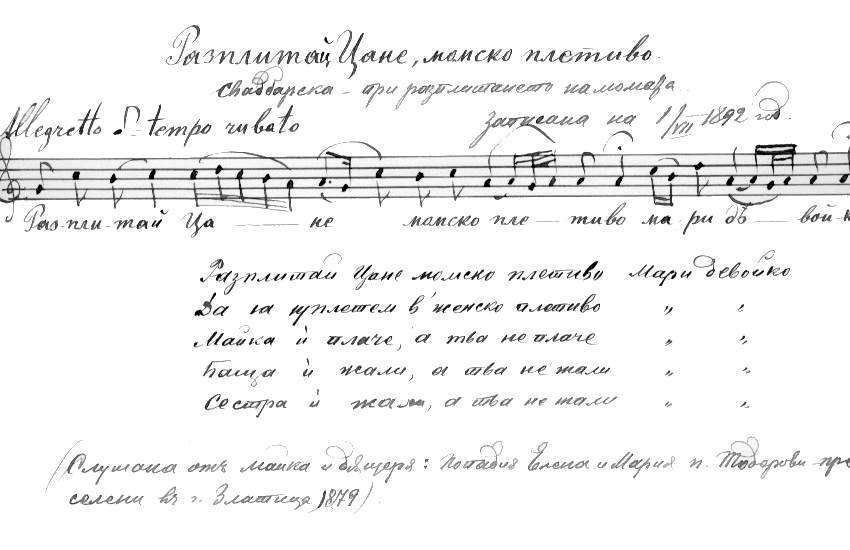 Разплитай Цане, момско плетиво.
Сваддарска – при разплитането на момата.
Allegretto tempo rubato
записана на 1/VII 1892 год.
Раз-пли-тай Ца — не момско пле — тиво ма-ри дѣ — вой-к
Разплитай Цане момско плетиво Мари девойко
Да га уплетем в' женско плетиво " "
Майка ѝ плаче, а тва не плаче " "
Баща ѝ жали, а тва не жали " "
Сестра ѝ жали, а тва не жали " "
(Слушана отъ майка и дъщеря: Попадия Елена и Мария п. Тодорови – пре
селени въ г. Златица 1879).